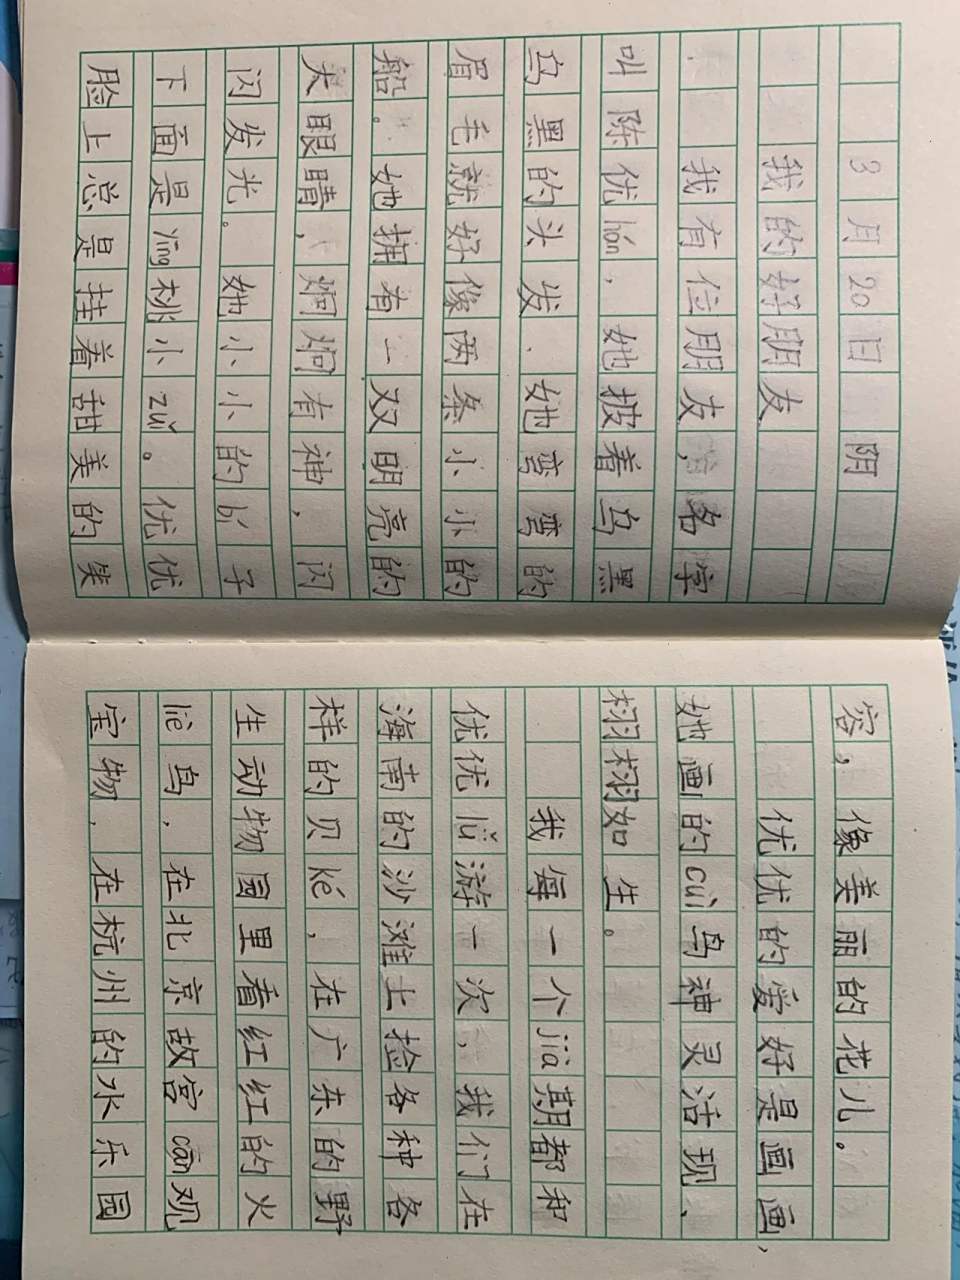 3月20日 阴
我的好朋友
我有位朋友,名字
叫陈优hán,她披着乌黑
乌黑的头发、她弯弯的
眉毛就好像两条小小的
船。她拥有一双明亮的
大眼睛,炯炯有神,闪
闪发光。她小小的bí子
下面是yīng桃小zuǐ。优优
脸上总是挂着甜美的笑
容,像美丽的花儿。
优优的爱好是画画,
她画的cuì鸟神灵活现、
栩栩如生。
我每一个jià期都和
优优lǚ游一次,我们在
海南的沙滩上捡各种各
样的贝ké,在广东的野
生动物园里看红红的火
liè鸟,在北京故宫cān观
宝物,在杭州的水乐园